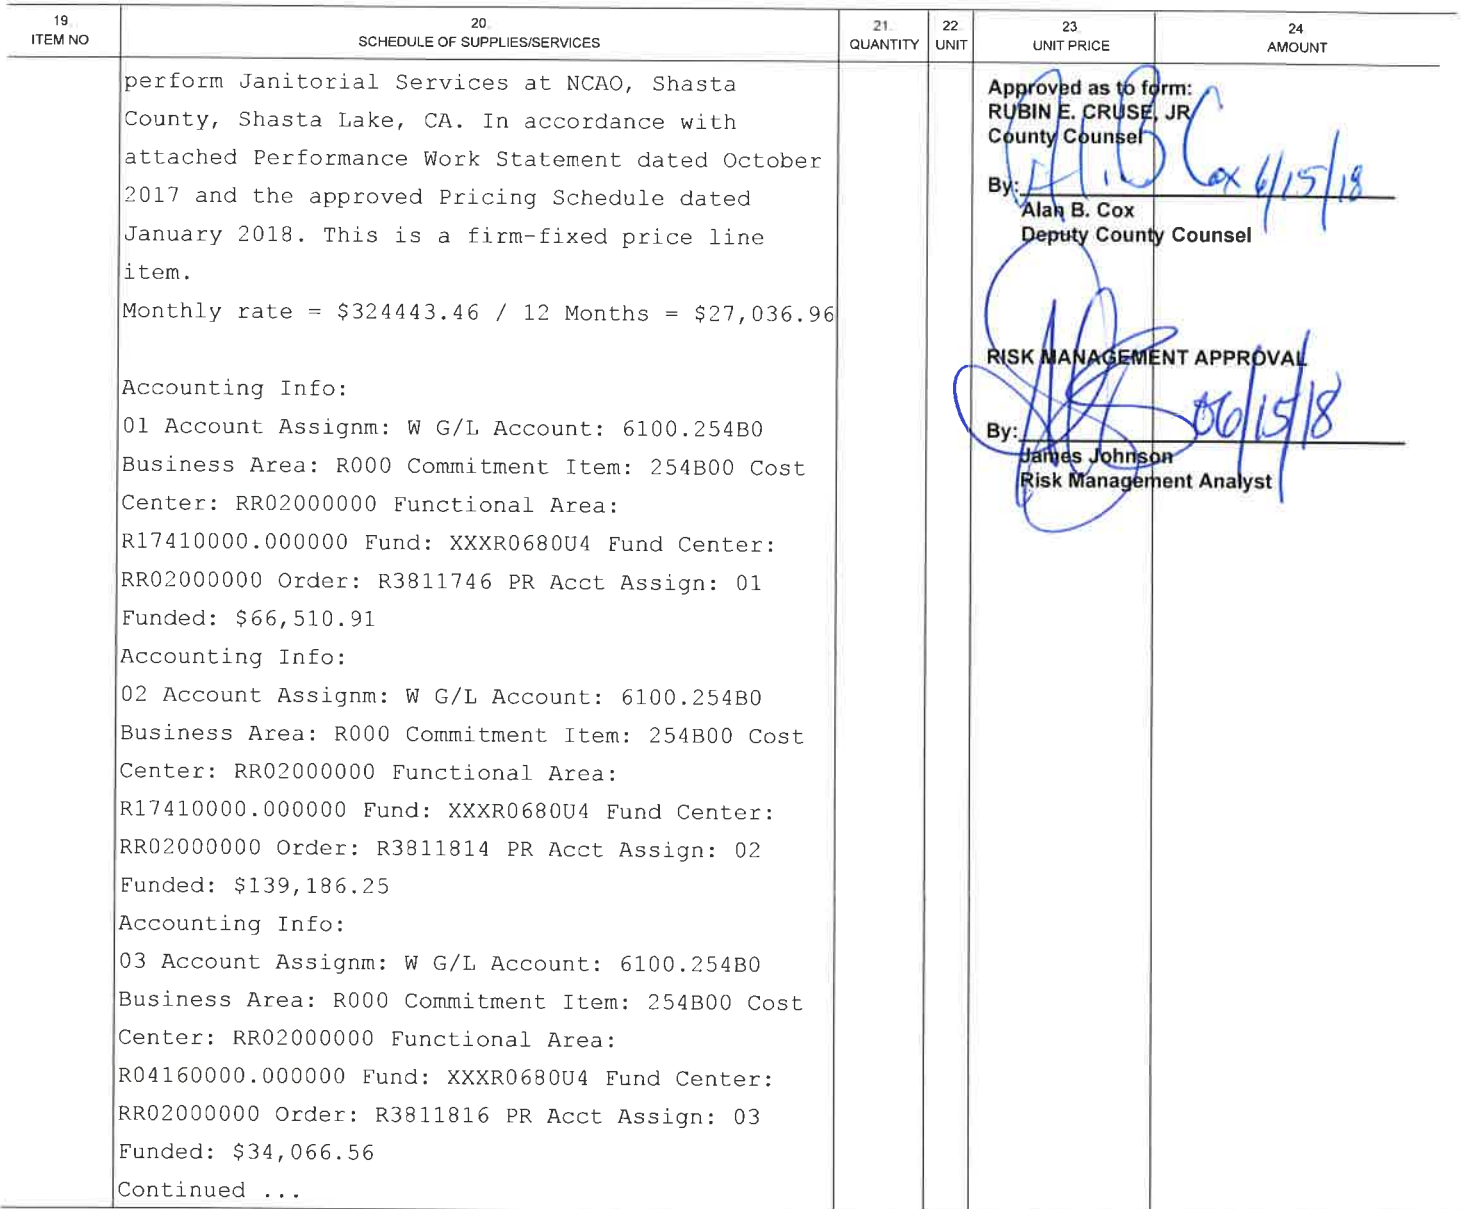 19
ITEM NO
20
SCHEDULE OF SUPPLIES/SERVICES
21
QUANTITY
22
UNIT
23
UNIT PRICE
24
AMOUNT
perform Janitorial Services at NCAO, Shasta
County, Shasta Lake, CA. In accordance with
attached Performance Work Statement dated October
2017 and the approved Pricing Schedule dated
January 2018. This is a firm-fixed price line
item.
Monthly rate = $324443.46 / 12 Months = $27,036.96
Accounting Info:
01 Account Assignm: W G/L Account: 6100.254B0
Business Area: R000 Commitment Item: 254B00 Cost
Center: RR02000000 Functional Area:
R17410000.000000 Fund: XXXR0680U4 Fund Center:
RR02000000 Order: R3811746 PR Acct Assign: 01
Funded: $66,510.91
Accounting Info:
02 Account Assignm: W G/L Account: 6100.254B0
Business Area: R000 Commitment Item: 254B00 Cost
Center: RR02000000 Functional Area:
R17410000.000000 Fund: XXXR0680U4 Fund Center:
RR02000000 Order: R3811814 PR Acct Assign: 02
Funded: $139,186.25
Accounting Info:
03 Account Assignm: W G/L Account: 6100.254B0
Business Area: R000 Commitment Item: 254B00 Cost
Center: RR02000000 Functional Area:
R04160000.000000 Fund: XXXR0680U4 Fund Center:
RR02000000 Order: R3811816 PR Acct Assign: 03
Funded: $34,066.56
Continued ...
Approved as to form:
RUBIN E. CRUSE, JR
County Counsel
By: A. B Cox 6/15/18
Alan B. Cox
Deputy County Counsel
RISK MANAGEMENT APPROVAL
By: 06/15/18
James Johnson
Risk Management Analyst